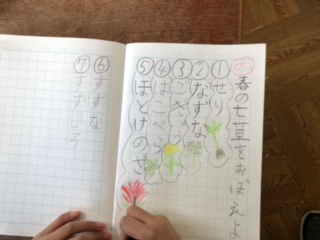 春の七草をおぼえよ
①せり
②なずな
③ごぎょう
④はこべら
⑤ほとけのざ
⑥すずな
⑦すずしろ